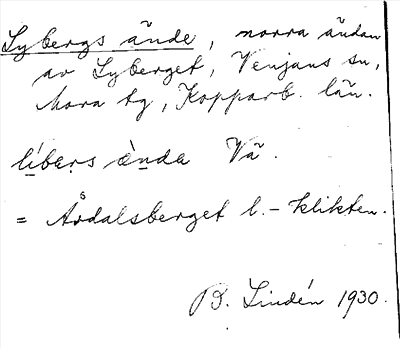 Lybergs ände, norra ändan
av Lyberget, Venjans sn,
Mora tg, Kopparb. län.
líbers ènda Vä.
= Årdalsberget l. - klikten.
B. Lindén 1930.